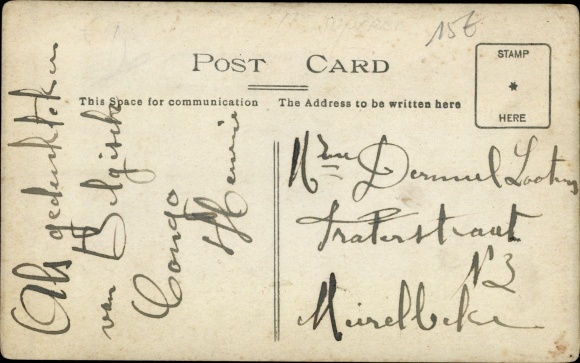 15€
POST CARD
This Space for communication
The Address to be written here
STAMP
*
HERE
Als gedenkteken
van Belgisch
Congo
Henri
Mme Dermul Lootens
Fraterstraat
N 3
Meirelbeke